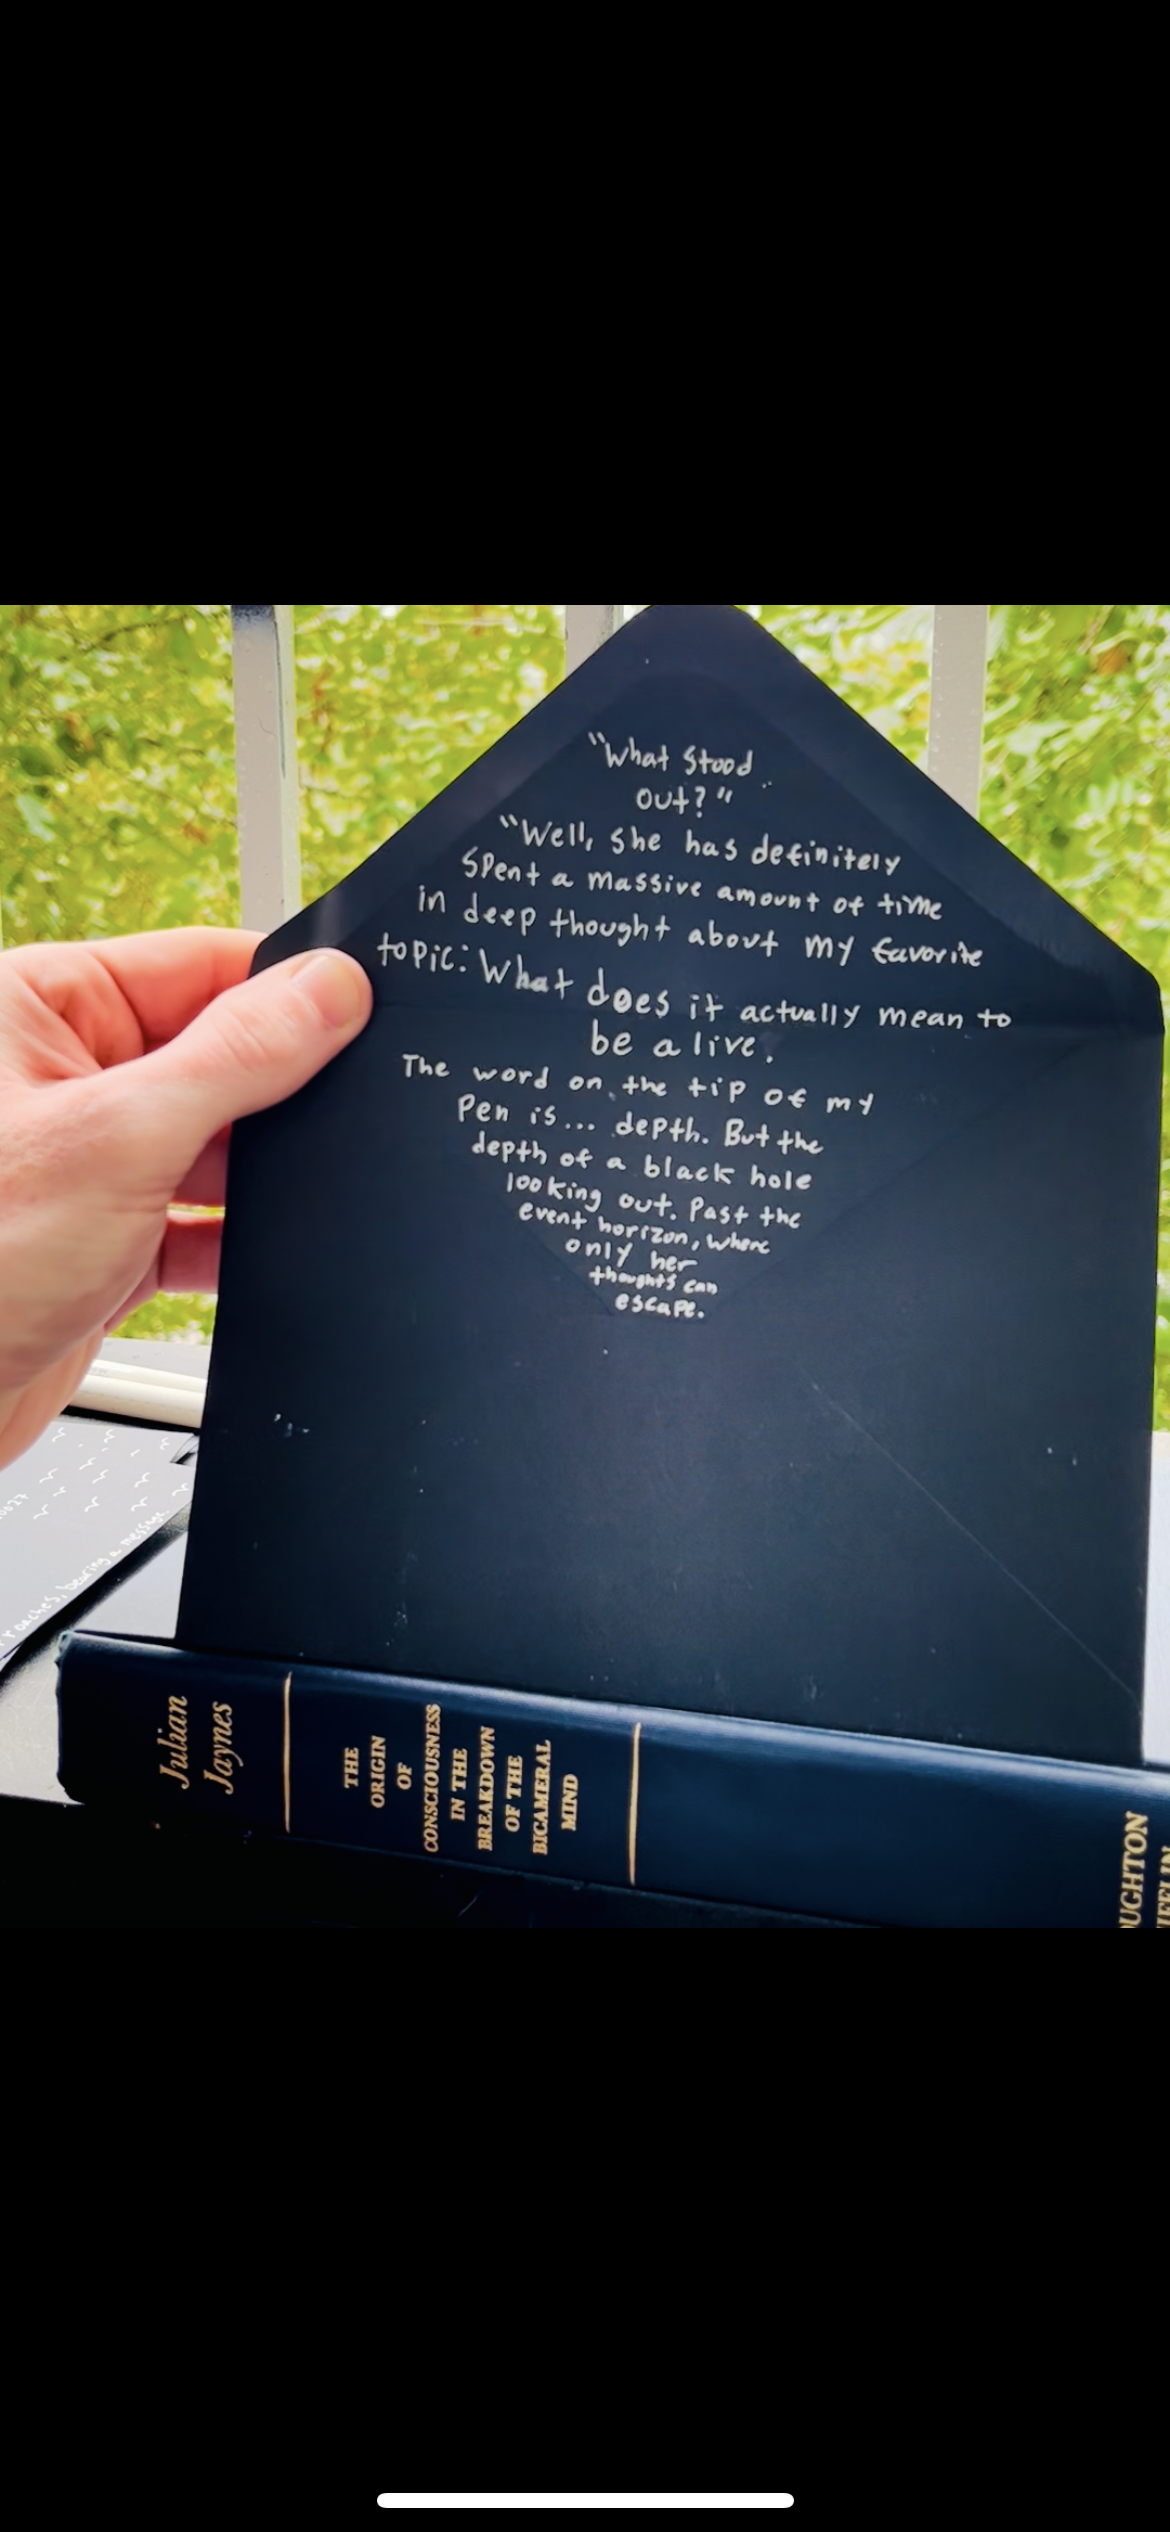 "What stood
out?"
"Well, she has definitely
spent a massive amount of time
in deep thought about my favorite
topic: What does it actually mean to
be alive.
The word on the tip of my
pen is... depth. But the
depth of a black hole
looking out. Past the
event horizon, where
only her
thoughts can
escape.
bearing a message.
Julian
Jaynes
THE
ORIGIN
OF
CONSCIOUSNESS
IN THE
BREAKDOWN
OF THE
BICAMERAL
MIND
OUGHTON